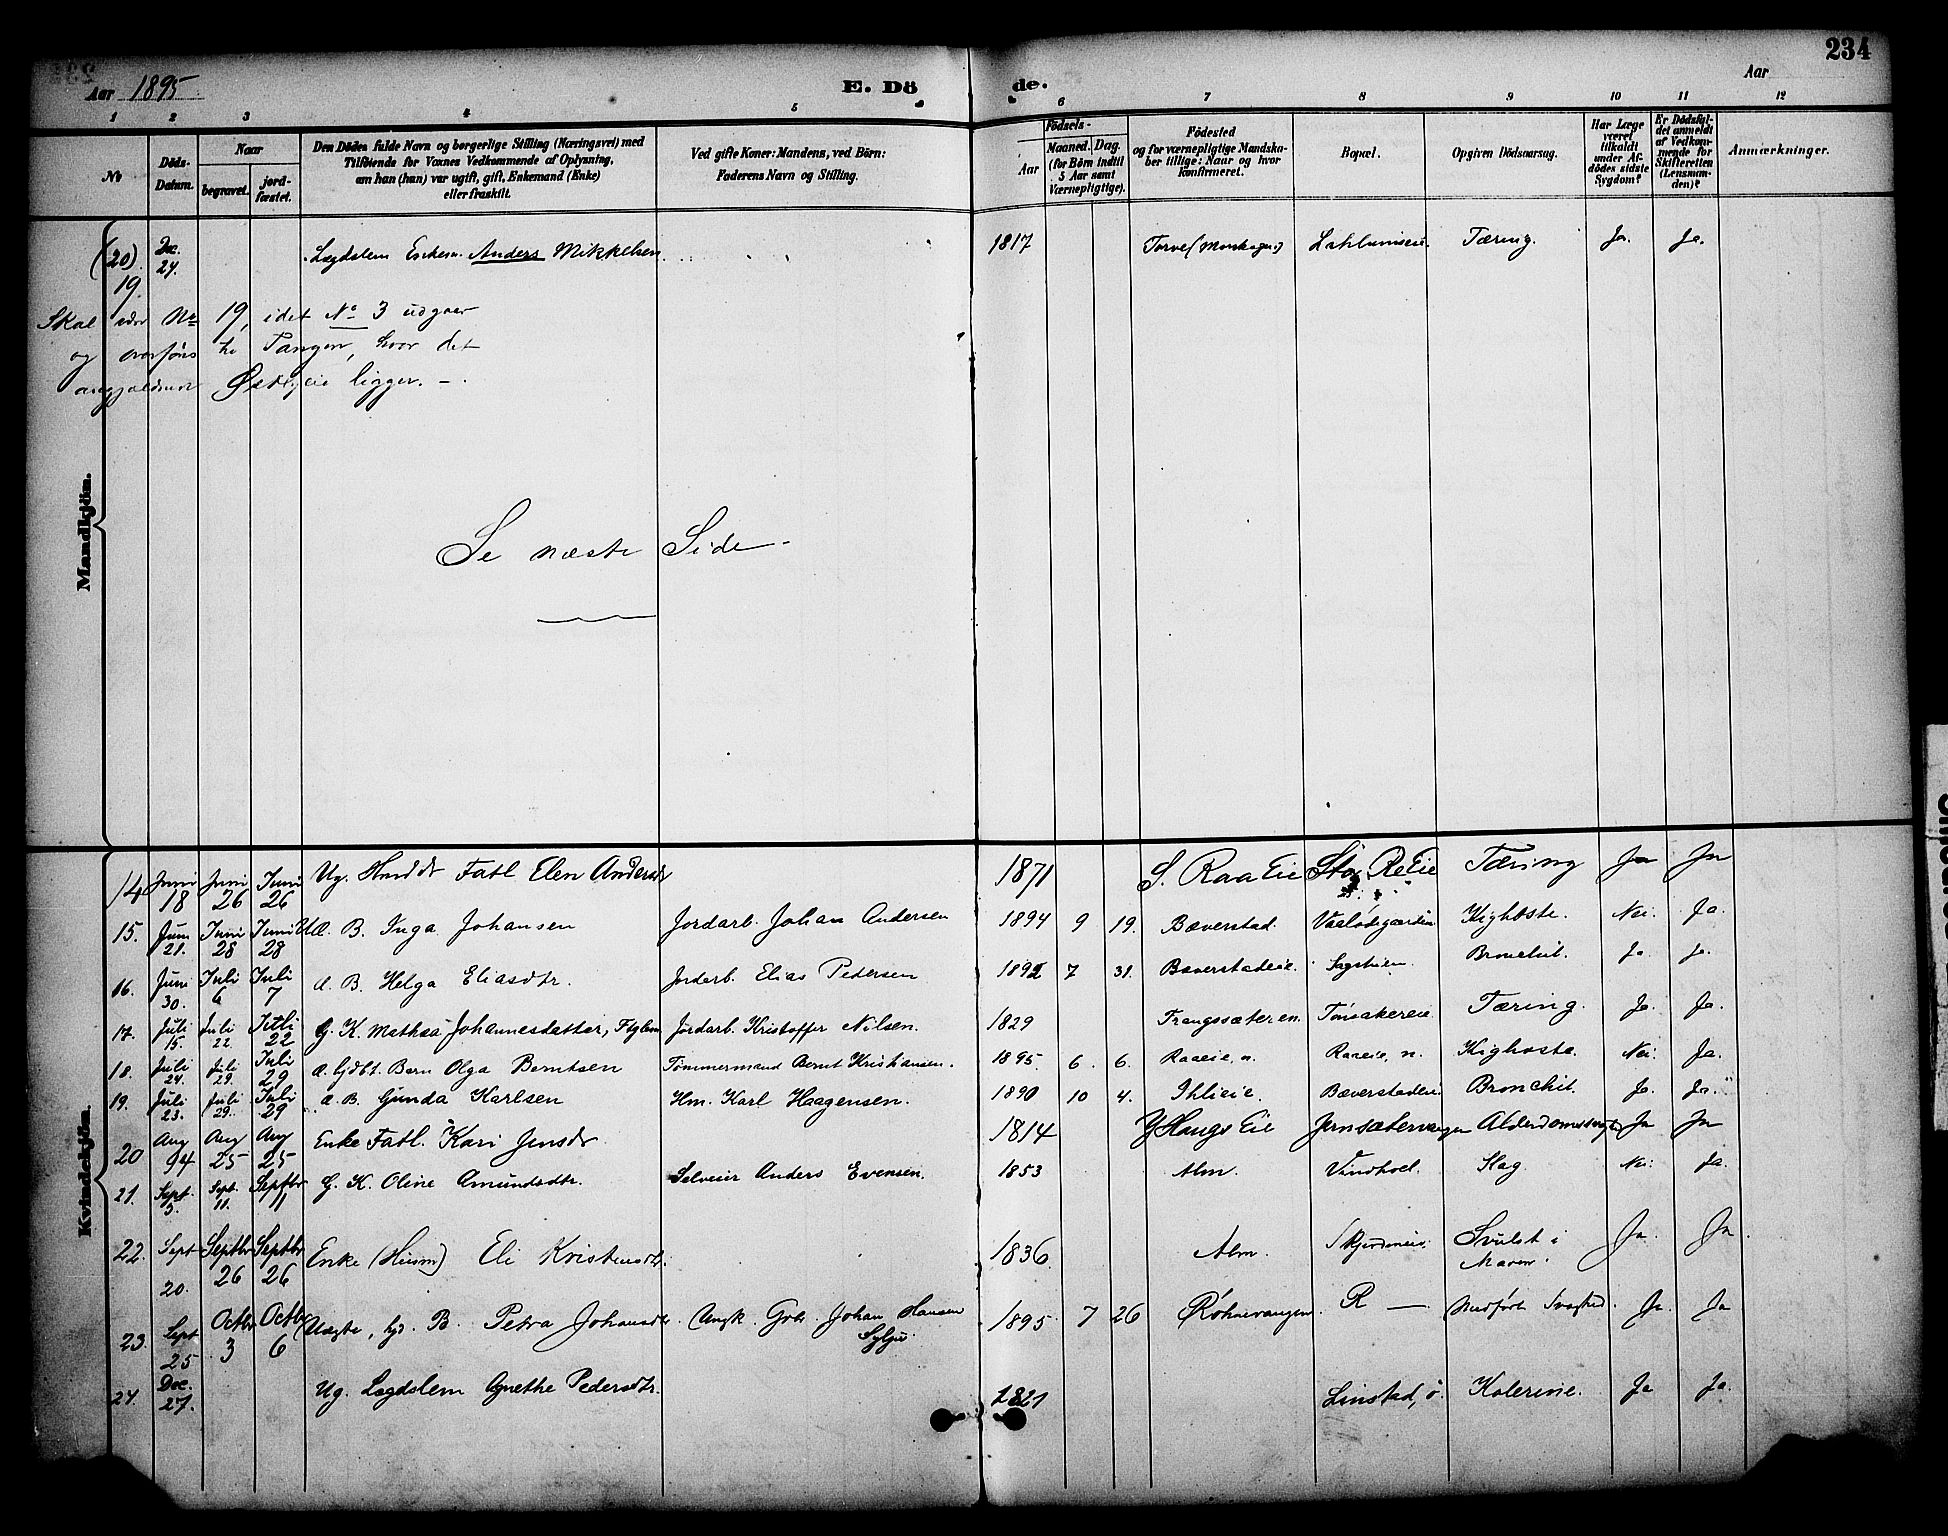 Aar 1895
E. Döde.
Aar
234
1 2 3 4 5 6 7 8 9 10 11 12
No
Döds-Datum.
Naar
begravet.
jord-fæstet.
Den Dödes fulde Navn og borgerlige Stilling (Næringsvei) med
Tilföiende for Voxnes Vedkommende af Oplysning,
om hun (han) var ugift, gift, Enkemand (Enke)
eller fraskilt.
Ved gifte Koner: Mandens, ved Börn:
Faderens Navn og Stilling.
Födsels-
Aar
Maaned. Dag.
(for Börn indtil
5 Aar samt
Værnepligtige).
Födested
og for værnepligtige Mandska-
ber tillige: Naar og hvor
konfirmeret.
Bopæl.
Opgiven Dödsaarsag.
Har Læge
været
tilkaldt
under Af-
dödes sidste
Sygdom?
Er Dödsfal-
det anmeldt
af Vedkom-
mende for
Skifteretten
(Lensman-
den)?
Anmærkninger.
Mandkjön.
(20) 19. Dec. 24. Lægdslem Enkem. Anders Mikkelsen 1817 Tæring. Ja. Ja.
Skal være No 19, idet No 3 udgaar
og overføres til Tangen, hvor det
ligger. –
Se næste Side
Kvindekjön.
14 Juni 18 Juni 26 Juni 26 Ug. Fatl Elen Andersdr 1871 S. Raa Eie Tæring Ja Ja
15. Juni 21. Juni 28 Juni 28 B. Inga Johansen Jordarb. Johan Andersen 1894 9 19. Bæverstad. Kighoste. Nei. Ja.
16. Juni 30. Juli 6 Juli 7 Æ. B. Helga Eliasdtr. Jordarb. Elias Pedersen 1892 7 31. Bæverstadeie. Bronchit. Ja. Ja.
17. Juli 15. Juli 22. Juli 22 G. K. Mathea Johannesdatter, Jordarb. Kristoffer Nilsen. 1829 Trangsæteren. Tønsakereie Tæring. Ja. Ja.
18. Juli 24. Juli 29. Juli 29 Æ. Barn Olga Berntsen Tømmermand Bernt Kristiansen. 1895. 6. 6. Raaeie, n. Raaeie, n. Kighoste. Nei. Ja.
19. Juli 23. Juli 29. Juli 29 Æ. B. Gunda Karlsen Hm. Karl Haagensen. 1890 10 4. Ihlieie. Bæverstadeie Bronchit. Ja. Ja.
20 Aug 14 Aug 25 Aug 25 Enke Fatl. Kari Jensdr 1814 Y Haugs Eie Jernsætervangen Ja Ja
21. Sept. 5. Sept. 11. Septbr 11 G. K. Oline Amundsdtr. Selveier Anders Evensen. 1853 Alm. Vindhoel. Slag Nei. Ja.
22. Sept 20. Septbr 26 Septbr 26 Enke (Husm) Eli Kristensdtr. 1836 Alm. Svulst i Maven. Ja. Ja.
23. Sept 25 Octbr 3 Octbr 6 Uægte, B. Petra Johansdtr. Ungk. Johan Hansen 1895 7 26 Røhnevangen. R — Medført Svaghed. Ja. Ja
24. Dec. 27. Ug. Lægdslem Agnethe Pedersdtr. 1821 Linstad, ø. Kolerine. Ja Ja.